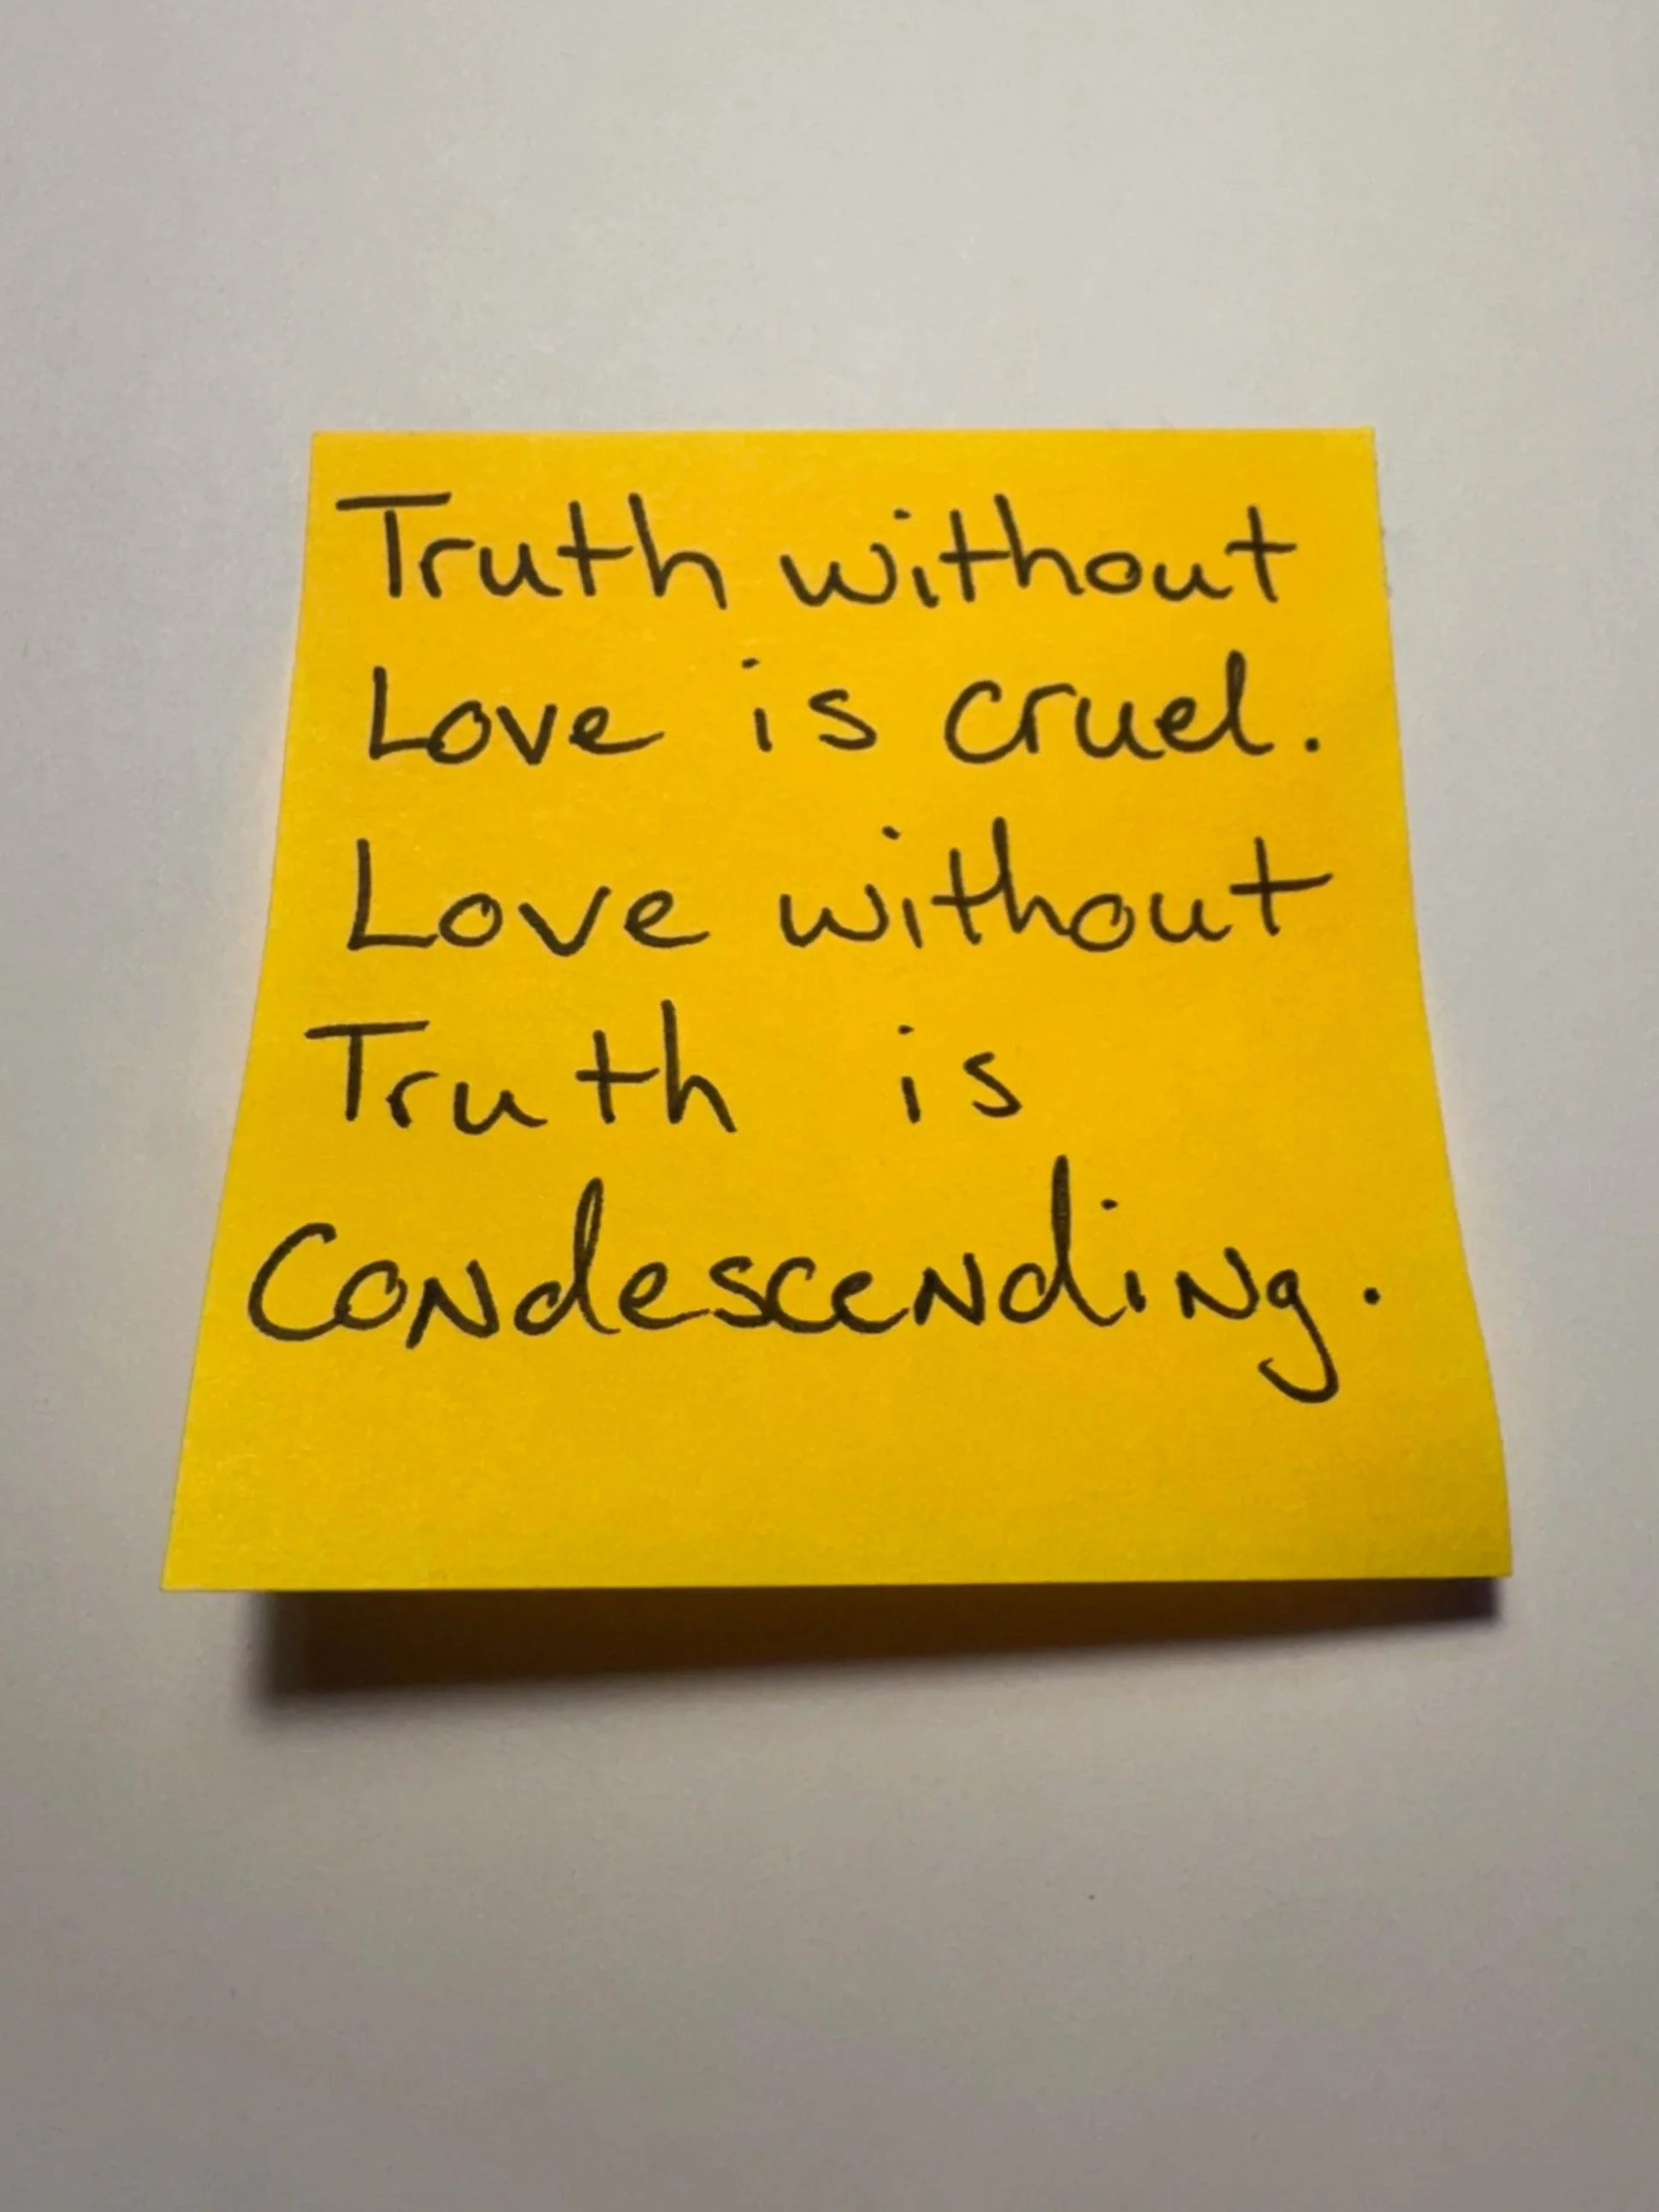 Truth without
Love is cruel.
Love without
Truth is
Condescending.